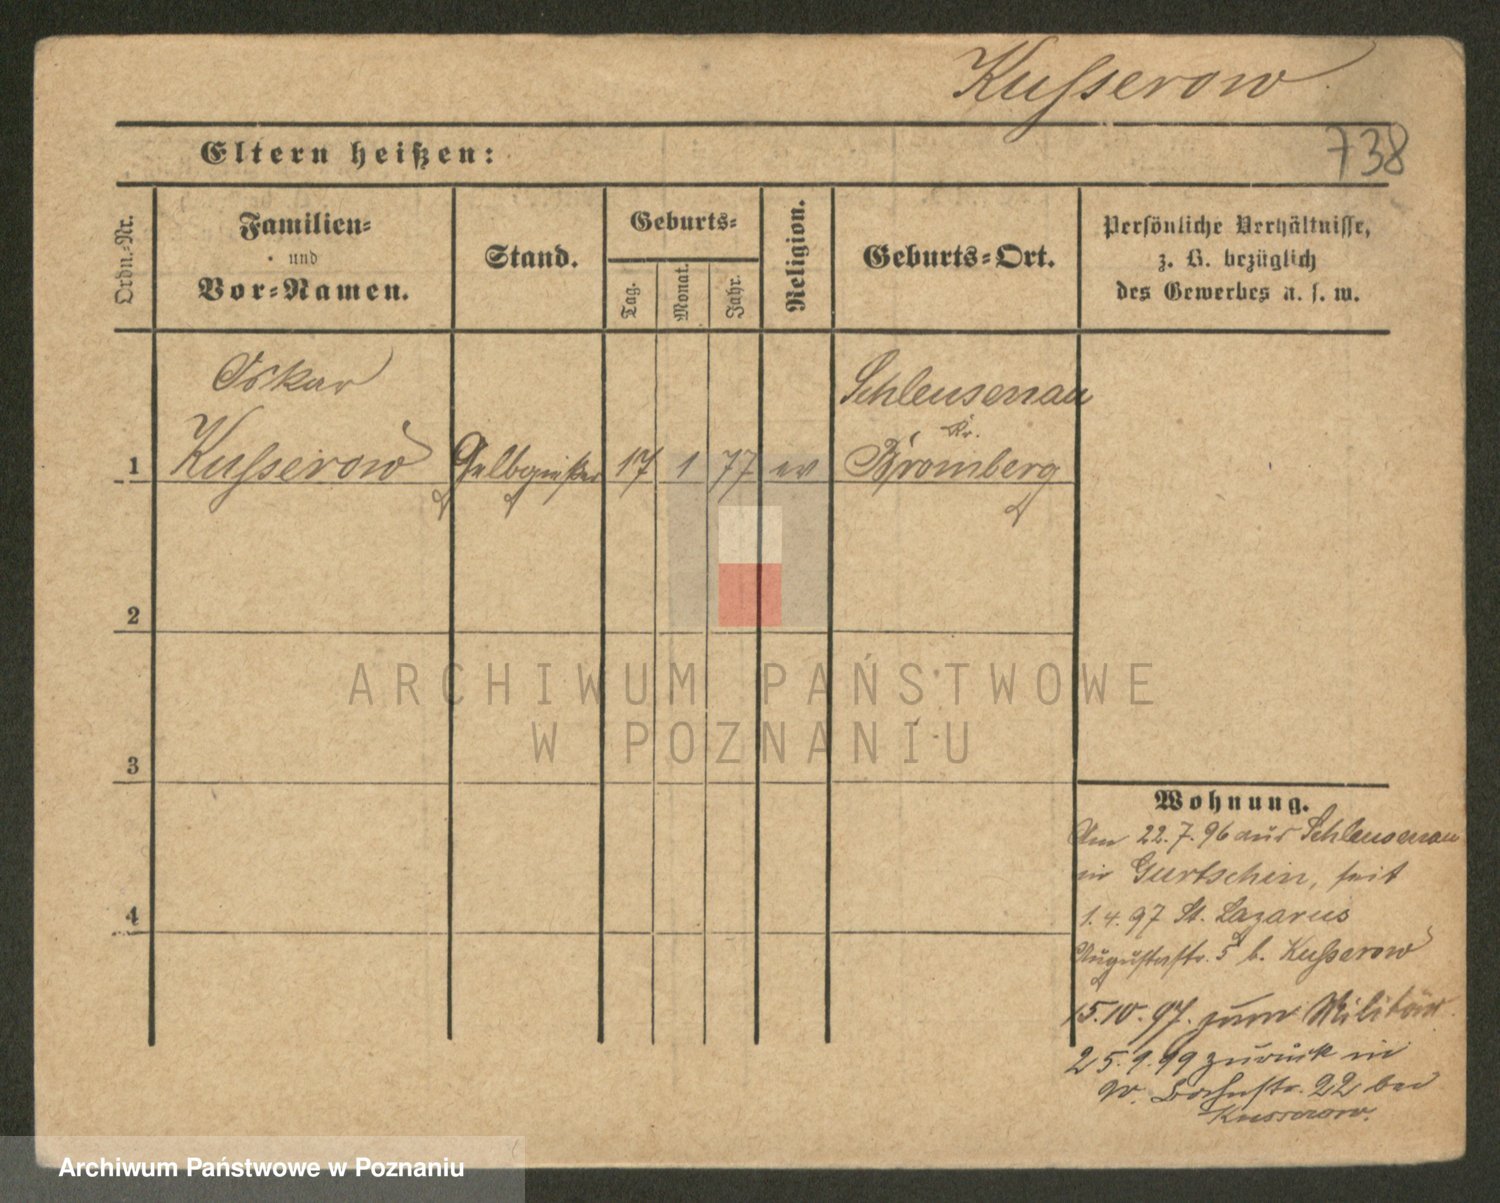 Kusserow
738
Eltern heißen:
Ordn.-Nr.
Familien-
und
Vor-Namen.
Stand.
Geburts-
Tag.
Monat.
Jahr.
Religion.
Geburts-Ort.
Persönliche Verhältnisse,
z. B. bezüglich
des Gewerbes u. s. w.
Oskar
Schleusenau
Kr.
1 Kusserow Gelbgießer 17 1 77 ev Bromberg
2
3
4
ARCHIWUM PAŃSTWOWE
W POZNANIU
Wohnung.
Am 22.7.96 aus Schleusenau
in Gurtschin, seit
1.4.97 St. Lazarus
Augustastr. 5 b. Kusserow
15.10.97. zum Militär
25.9.99 zurück in
W. Bahnstr. 22 bei
Kusserow.
Archiwum Państwowe w Poznaniu